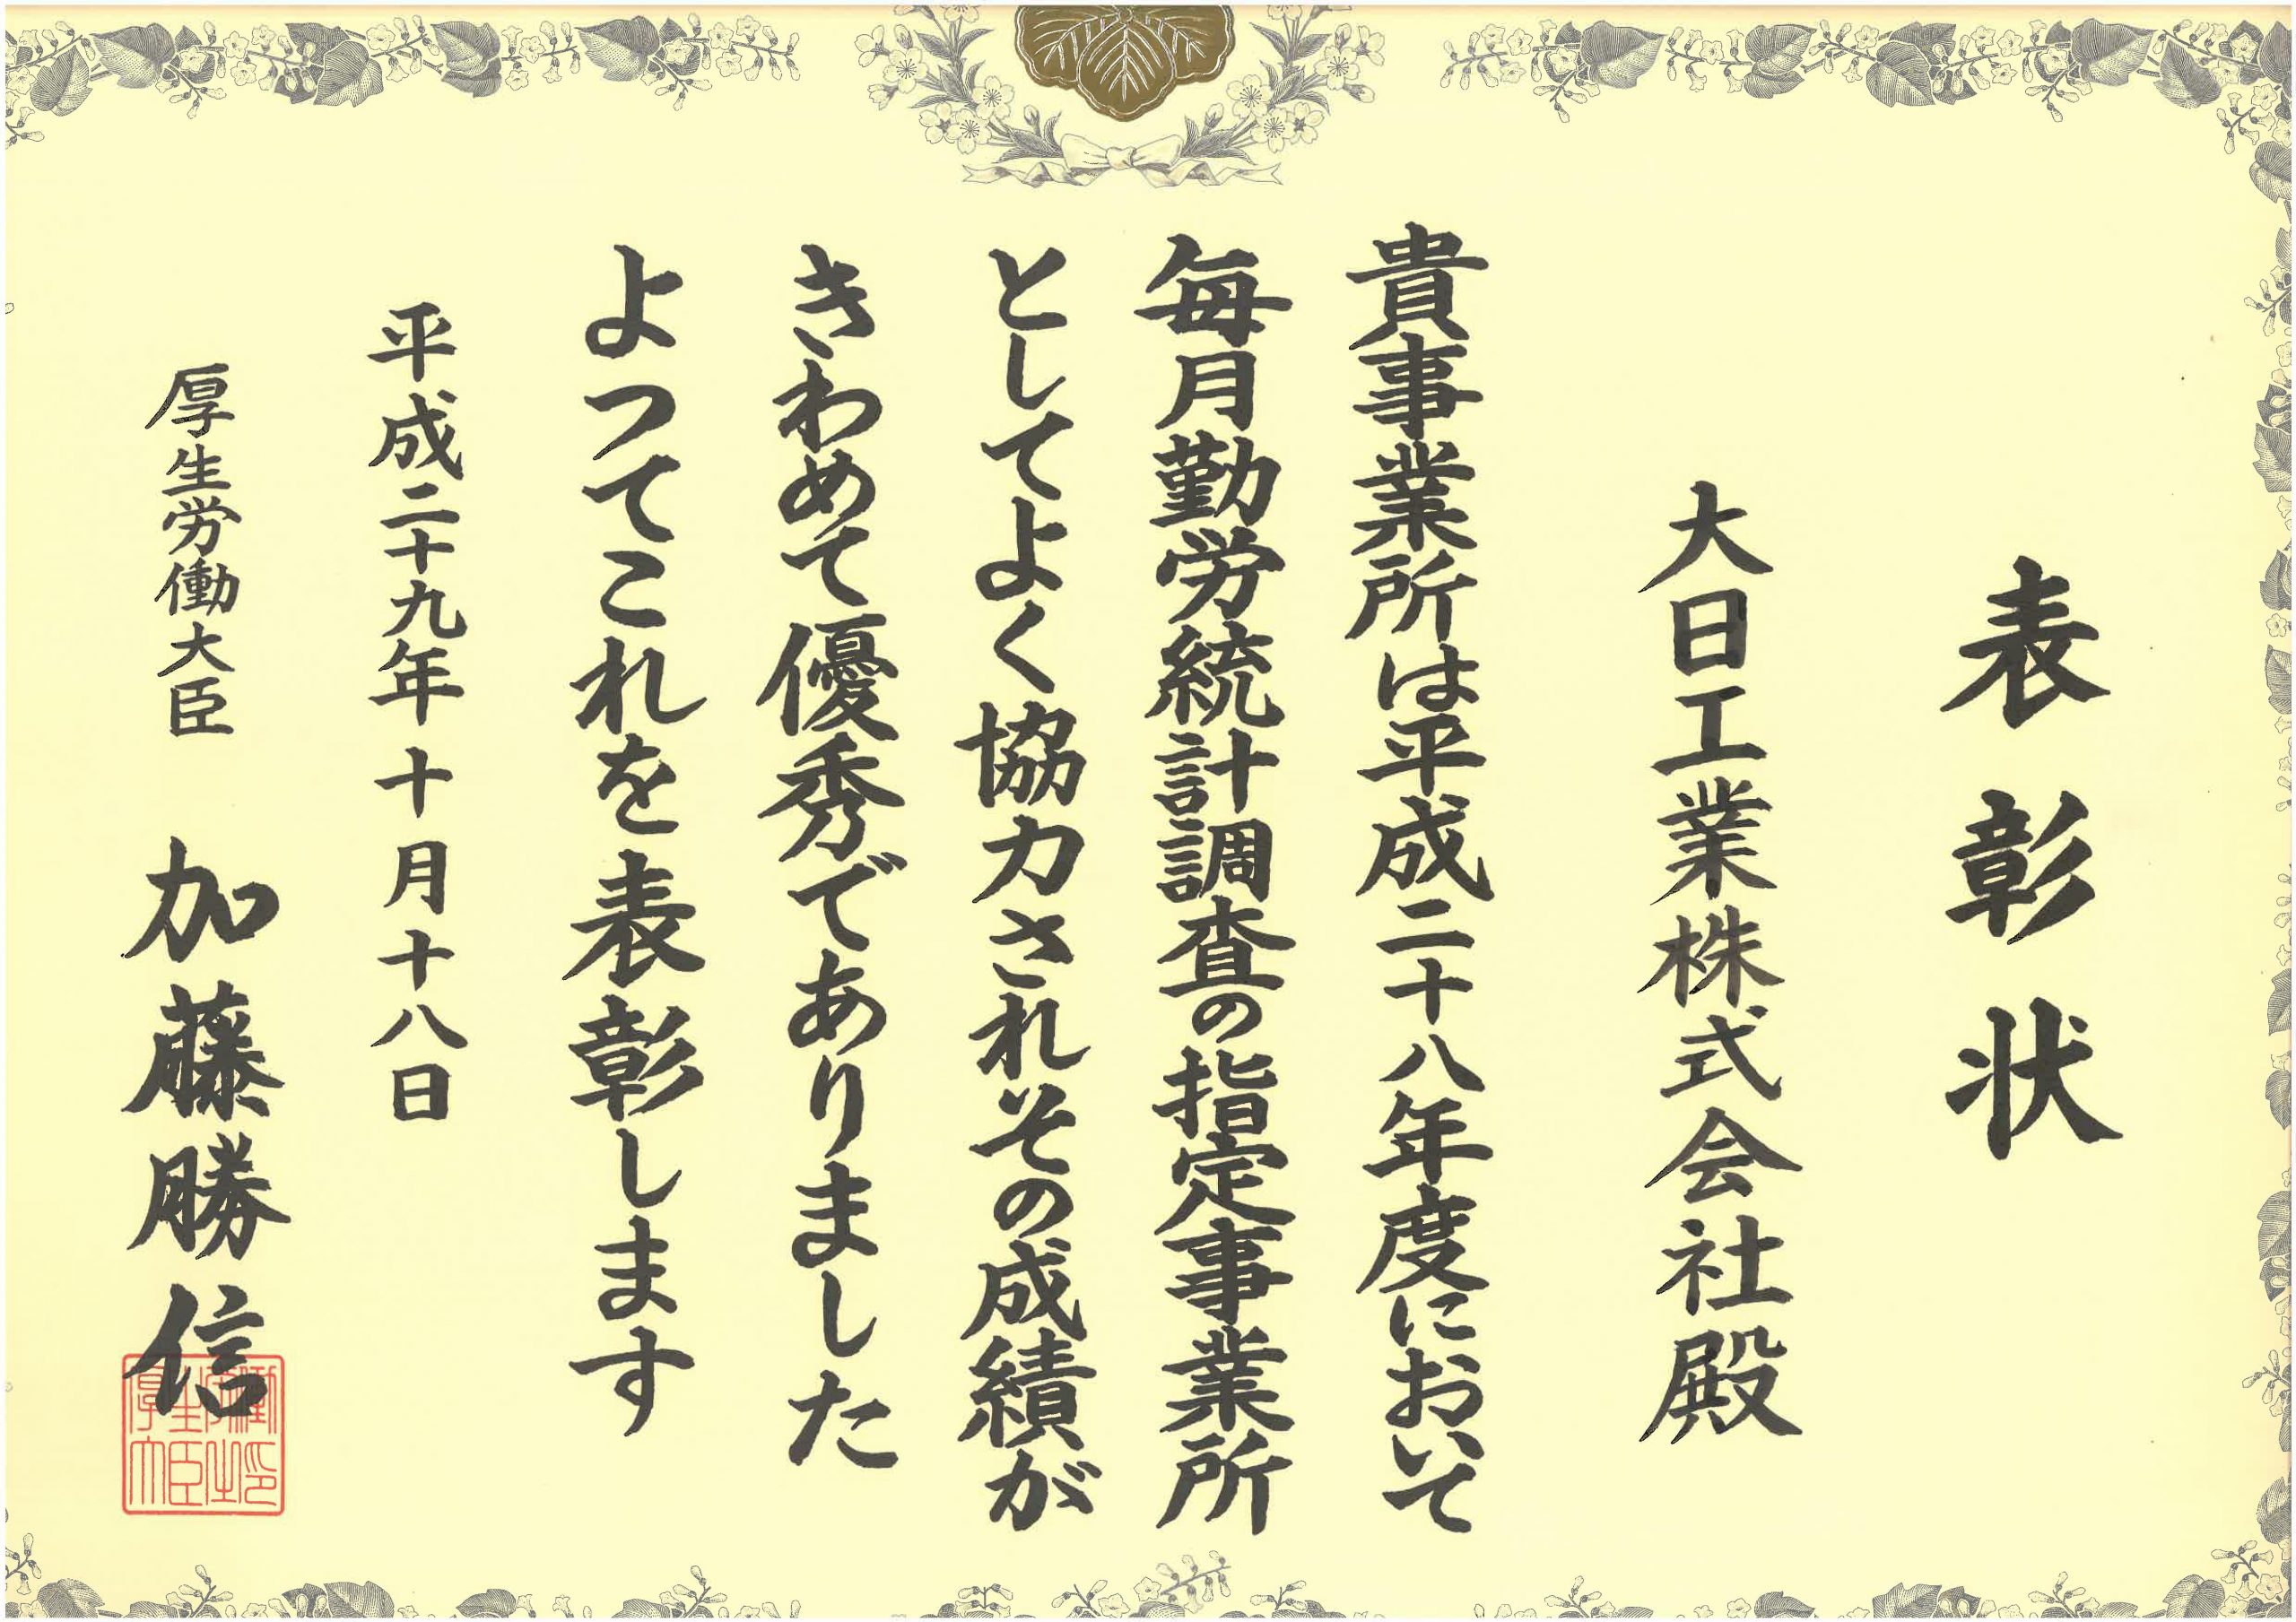 表彰状
大日工業株式会社殿
貴事業所は平成二十八年度において
毎月勤労統計調査の指定事業所
としてよく協力されその成績が
きわめて優秀でありました
よつてこれを表彰します
平成二十九年十月十八日
厚生労働大臣 加藤勝信
厚生労働大臣之印